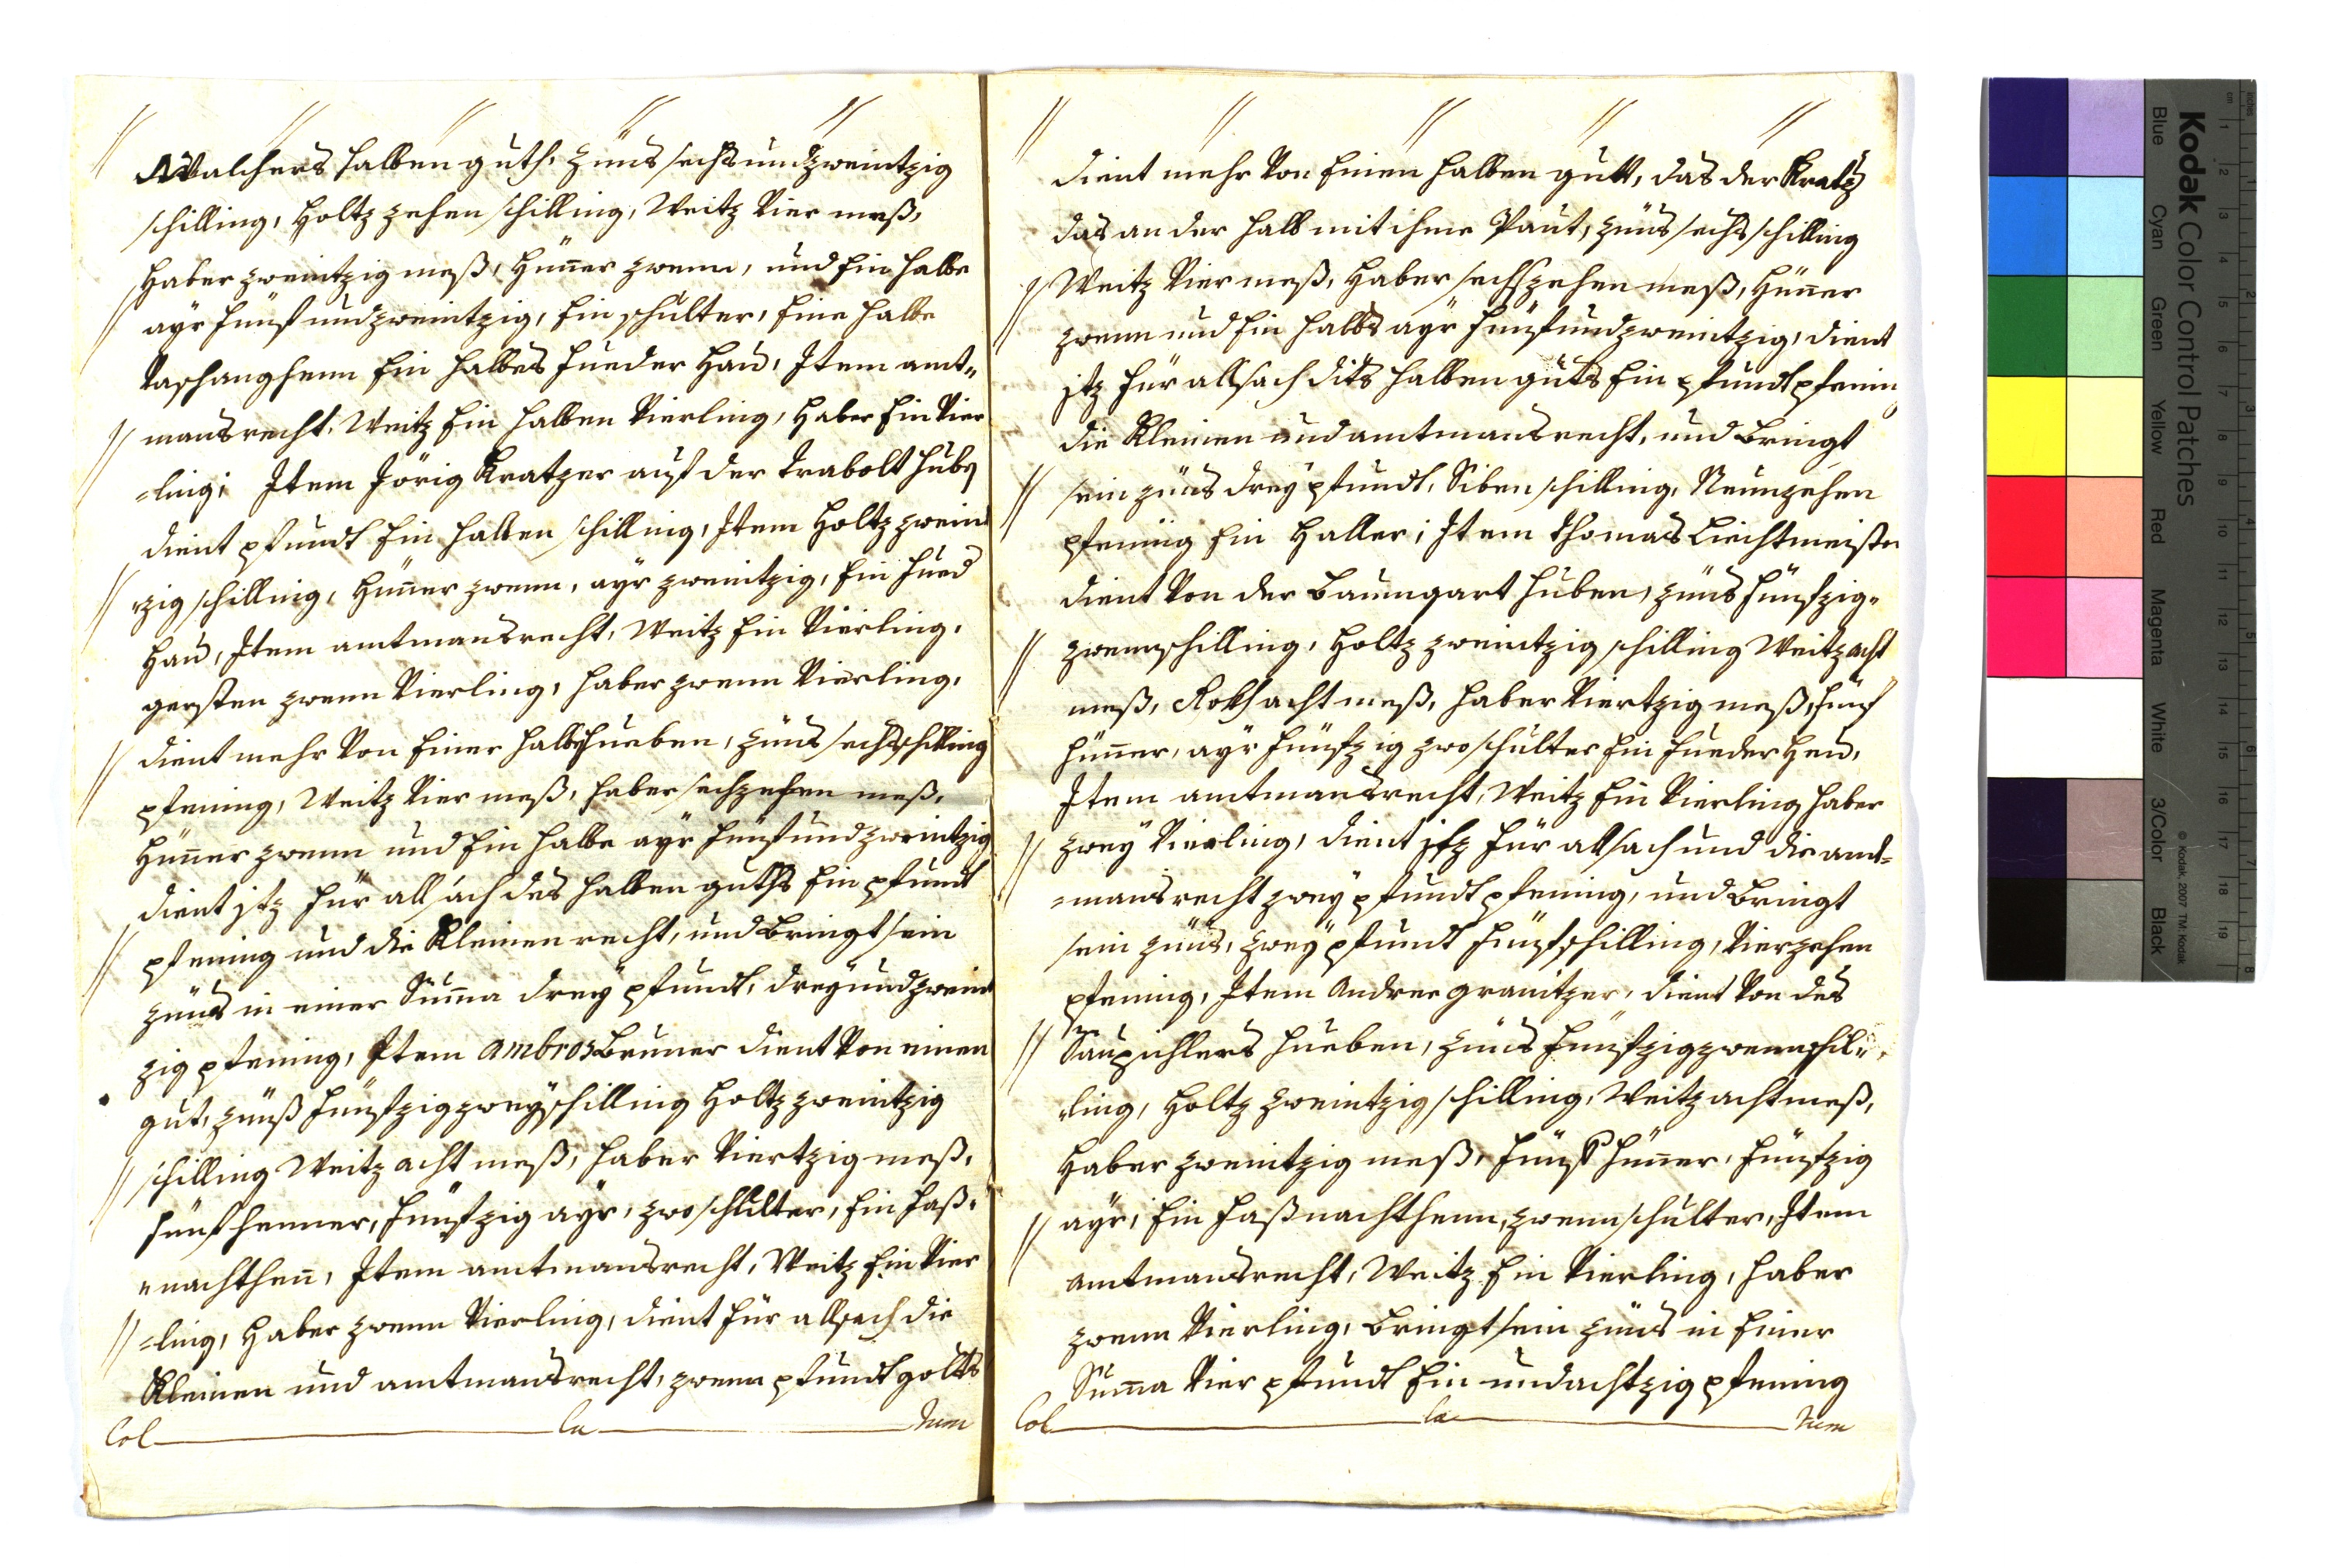 Walchers halben guth, zünß sechsundzweintzig
schilling, Holtz zehen schilling, Weitz Vier meß,
Haber zweintzig meß, Hüner zwenn, und Ein halbe
ayr Fünfundzweintzig, Ein schulter, Eine halbe
Vaschanghenn Ein halbes Fueder Haü, Item amt„
mansrecht, Weitz Ein halben Vierling, Haber Ein Vier
=ling; Item Jörig Kratzer auf der Trabolt Hube
dient pfundt Ein halben schilling, Item Holtz zwein
„zig schilling, Hüner zwenn, ayr zweintzig, Ein Fued
Haü, Item amtmansrecht, Weitz Ein Vierling,
gersten zwenn Vierling, haber zwenn Vierling,
dient mehr Von Einer halbhueben, zünß sechsschilling
pfening, Weitz Vier meß, haber sechzehen meß,
Hüner zwenn und Ein halbe ayr Fünfundzweintzig
dient jtz Für all sach des halben guths Ein pfundt
pfening und die Kleinen recht, und Bringt sein
zünß in einer Suma drey pfundt, dreyundzwein
zig pfening, Item Ambros Bruner dient Von einen
gut, zünß Fünfzigzweyschilling Holtz zweintzig
schilling Weitz acht meß, haber Viertzig meß,
Fünf henner, Fünfzig ayr, zwo schulter, Ein Faß„
„nachthen, Item amtmansrecht, Weitz Ein Vier
=ling, Haber zwenn Vierling, dient Für allsach die
Kleinen und amtmansrecht, zwenn pfundt golts
Col la tum
dient mehr Von Einen halben gutt, das der Kratz
das an der halb mit ihme Paut, zünß sechs schilling
Weitz Vier meß, Haber sechszehen meß, Hüner
zwenn und Ein halbs ayr Fünfundzweintzig, dient
jtz Für allsach dits halben guts Ein pfundt pfenin
die Kleinen und amtmansrecht, und Bringt
sein zünß drey pfundt, Siben schilling, Neunzehen
pfening Ein Haller; Item Thomas Liechtmeister
dient Von der Baumgart Huben, zünß Fünfzig„
zwennschilling, Holtz zweintzig schilling Weitz acht
meß, Rokh acht meß, haber Viertzig meß, Fünf
Hüner, ayr Fünfzig zwo schulter Ein Fueder Heü,
Item amtmansrecht, Weitz Ein Vierling haber
zwey Vierling, dient jtz Für all sach und die amt=
=mansrecht zwey pfundt pfening, und Bringt
sein zünß, zwey pfundt Fünfschilling, Vierzehen
pfening, Item Andree granitzer, dient Von des
Saupichlers Hueben, zünß Fünfzigzwennschil„
„ling, Holtz zweintzig schilling, Weitz acht meß,
Haber zweintzig meß, Fünf Hüner, Fünfzig
ayr, Ein Faßnachthenn, zwenn schulter, Item
Amtmansrecht, Weitz Ein Vierling, haber
zwenn Vierling, Bringt sein zünß in Einer
Suma Vier pfundt Ein undachtzig pfening
Col la tum
Kodak Color Control Patches
Blue Cyan Green Yellow Red Magenta White 3/Color Black
© Kodak, 2007 TM: Kodak